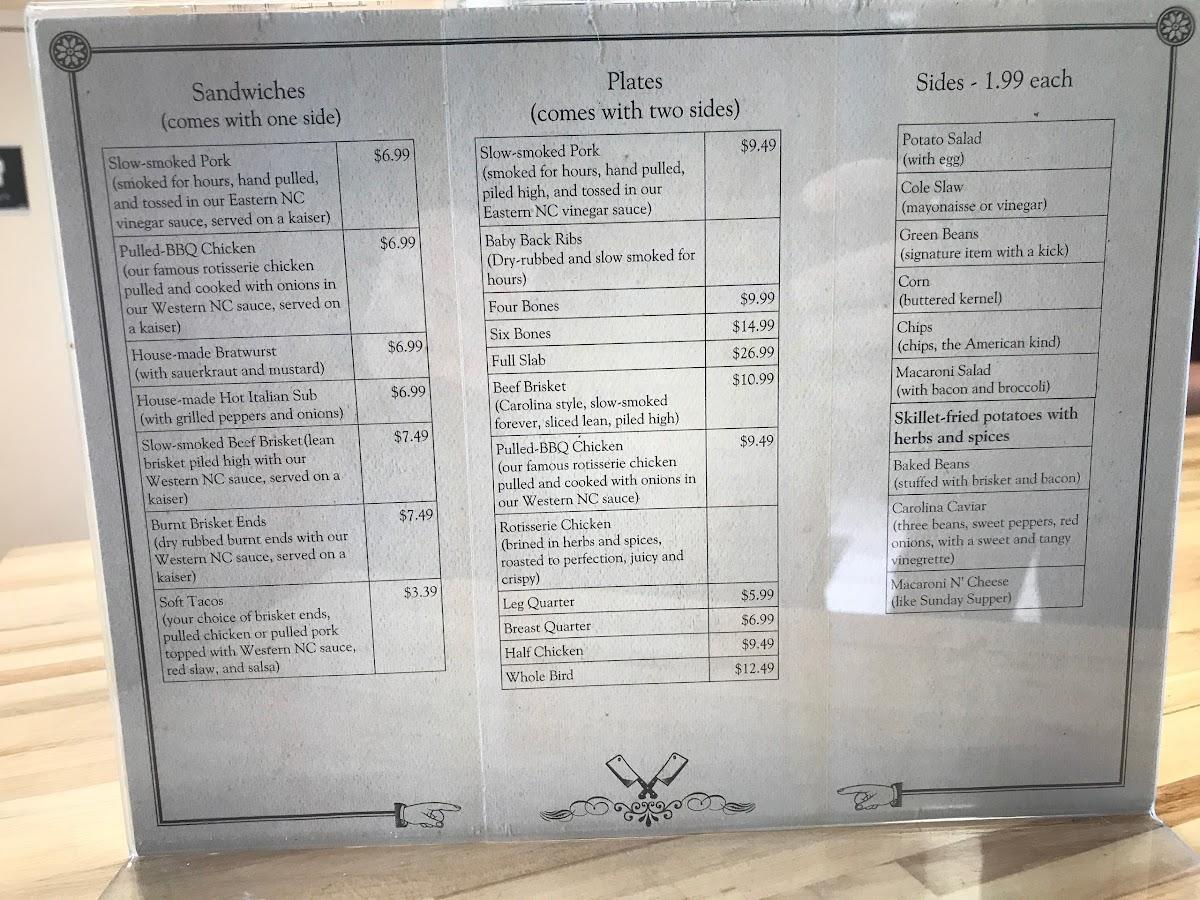 Sandwiches
(comes with one side)
Slow-smoked Pork $6.99
(smoked for hours, hand pulled,
and tossed in our Eastern NC
vinegar sauce, served on a kaiser)
Pulled-BBQ Chicken $6.99
(our famous rotisserie chicken
pulled and cooked with onions in
our Western NC sauce, served on
a kaiser)
House-made Bratwurst $6.99
(with sauerkraut and mustard)
House-made Hot Italian Sub $6.99
(with grilled peppers and onions)
Slow-smoked Beef Brisket(lean $7.49
brisket piled high with our
Western NC sauce, served on a
kaiser)
Burnt Brisket Ends $7.49
(dry rubbed burnt ends with our
Western NC sauce, served on a
kaiser)
Soft Tacos $3.39
(your choice of brisket ends,
pulled chicken or pulled pork
topped with Western NC sauce,
red slaw, and salsa)
Plates
(comes with two sides)
Slow-smoked Pork $9.49
(smoked for hours, hand pulled,
piled high, and tossed in our
Eastern NC vinegar sauce)
Baby Back Ribs
(Dry-rubbed and slow smoked for
hours)
Four Bones $9.99
Six Bones $14.99
Full Slab $26.99
Beef Brisket $10.99
(Carolina style, slow-smoked
forever, sliced lean, piled high)
Pulled-BBQ Chicken $9.49
(our famous rotisserie chicken
pulled and cooked with onions in
our Western NC sauce)
Rotisserie Chicken
(brined in herbs and spices,
roasted to perfection, juicy and
crispy)
Leg Quarter $5.99
Breast Quarter $6.99
Half Chicken $9.49
Whole Bird $12.49
Sides - 1.99 each
Potato Salad
(with egg)
Cole Slaw
(mayonaisse or vinegar)
Green Beans
(signature item with a kick)
Corn
(buttered kernel)
Chips
(chips, the American kind)
Macaroni Salad
(with bacon and broccoli)
Skillet-fried potatoes with
herbs and spices
Baked Beans
(stuffed with brisket and bacon)
Carolina Caviar
(three beans, sweet peppers, red
onions, with a sweet and tangy
vinegrette)
Macaroni N' Cheese
(like Sunday Supper)